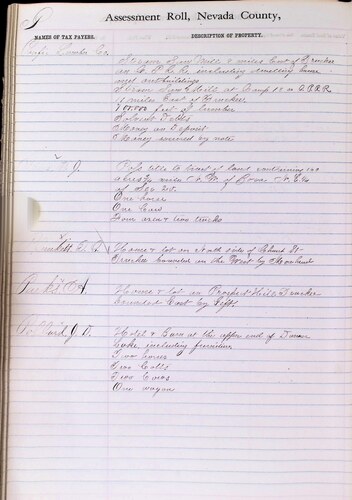 P
Assessment Roll, Nevada County,
NAMES OF TAX PAYERS.
DESCRIPTION OF PROPERTY.
Lumber Co
Steam Saw Mill 2 miles East of Truckee
on C.P.R.R. including dwelling house
and outbuildings
Steam Saw Mill at Camp 18 on C.P.R.R
11 miles East of Truckee
700,000 feet of lumber
Solvent Debts
Money on Deposit
Money secured by note
J
Poss title to tract of land containing 160
acres
of Sec 20.
One horse
One Cow
House & lot on North side of Church St
Truckee bounded on the West by Moorlands
House & lot on Prospect Hill Truckee
bounded East by Gifts
J. D.
Hotel & Barn at the upper end of Donner
Lake including furniture
Two horses
Two Colts
Two Cows
One wagon